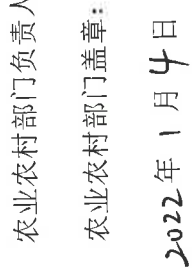 农业农村部门负责人
农业农村部门盖章:
2022年1月4日